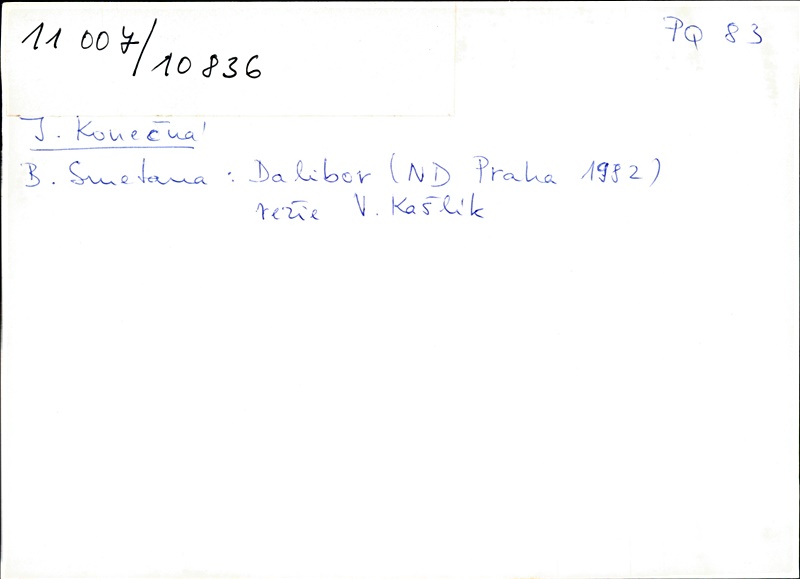 11 007/10 836
PQ 83
J. Konečná
B. Smetana : Dalibor (ND Praha 1982)
režie V. Kašlík